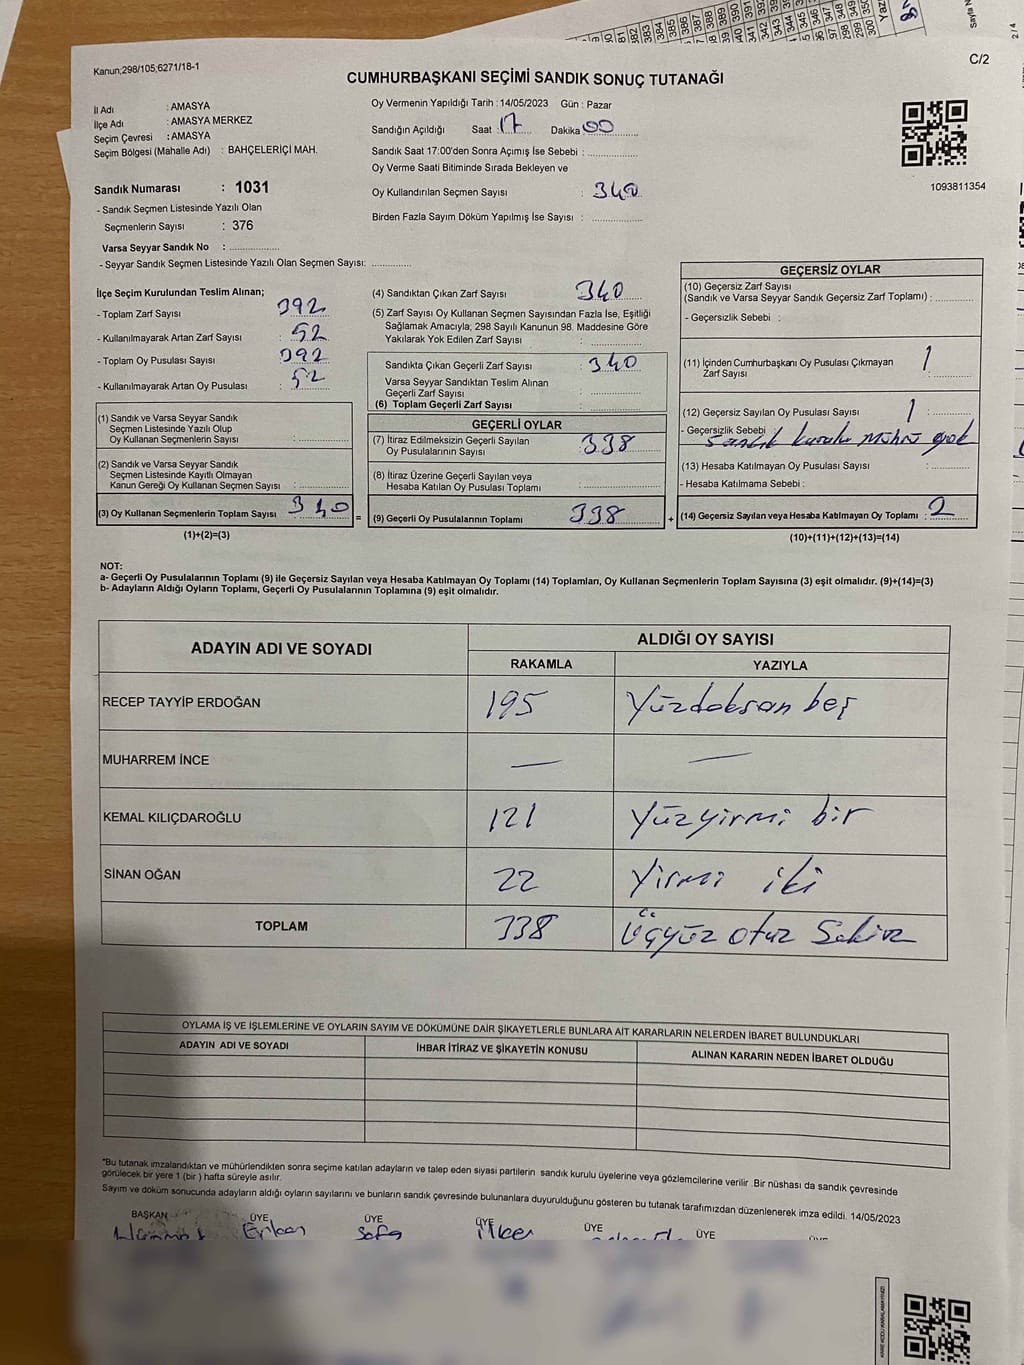 Kanun;298/105;6271/18-1
C/2
CUMHURBAŞKANI SEÇİMİ SANDIK SONUÇ TUTANAĞI
İl Adı : AMASYA
İlçe Adı : AMASYA MERKEZ
Seçim Çevresi : AMASYA
Seçim Bölgesi (Mahalle Adı) : BAHÇELERİÇİ MAH.
Sandık Numarası : 1031
- Sandık Seçmen Listesinde Yazılı Olan
Seçmenlerin Sayısı : 376
Varsa Seyyar Sandık No : ..............
- Seyyar Sandık Seçmen Listesinde Yazılı Olan Seçmen Sayısı: ...........
Oy Vermenin Yapıldığı Tarih : 14/05/2023 Gün : Pazar
Sandığın Açıldığı Saat 17 Dakika 00
Sandık Saat 17:00'den Sonra Açımış İse Sebebi : ..............
Oy Verme Saati Bitiminde Sırada Bekleyen ve
Oy Kullandırılan Seçmen Sayısı : 340
Birden Fazla Sayım Döküm Yapılmış İse Sayısı : ..............
1093811354
İlçe Seçim Kurulundan Teslim Alınan;
- Toplam Zarf Sayısı : 392
- Kullanılmayarak Artan Zarf Sayısı : 52
- Toplam Oy Pusulası Sayısı : 392
- Kullanılmayarak Artan Oy Pusulası : 52
(1) Sandık ve Varsa Seyyar Sandık
Seçmen Listesinde Yazılı Olup
Oy Kullanan Seçmenlerin Sayısı : ..............
(2) Sandık ve Varsa Seyyar Sandık
Seçmen Listesinde Kayıtlı Olmayan
Kanun Gereği Oy Kullanan Seçmen Sayısı : ..............
(3) Oy Kullanan Seçmenlerin Toplam Sayısı : 340 =
(1)+(2)=(3)
(4) Sandıktan Çıkan Zarf Sayısı : 340
(5) Zarf Sayısı Oy Kullanan Seçmen Sayısından Fazla İse, Eşitliği
Sağlamak Amacıyla; 298 Sayılı Kanunun 98. Maddesine Göre
Yakılarak Yok Edilen Zarf Sayısı : ..............
Sandıkta Çıkan Geçerli Zarf Sayısı : 340
Varsa Seyyar Sandıktan Teslim Alınan
Geçerli Zarf Sayısı : ..............
(6) Toplam Geçerli Zarf Sayısı : ..............
GEÇERLİ OYLAR
(7) İtiraz Edilmeksizin Geçerli Sayılan
Oy Pusulalarının Sayısı : 338
(8) İtiraz Üzerine Geçerli Sayılan veya
Hesaba Katılan Oy Pusulası Toplamı : ..............
(9) Geçerli Oy Pusulalarının Toplamı : 338 +
GEÇERSİZ OYLAR
(10) Geçersiz Zarf Sayısı
(Sandık ve Varsa Seyyar Sandık Geçersiz Zarf Toplamı) : ..........
- Geçersizlik Sebebi :
(11) İçinden Cumhurbaşkanı Oy Pusulası Çıkmayan
Zarf Sayısı : 1
(12) Geçersiz Sayılan Oy Pusulası Sayısı : 1
- Geçersizlik Sebebi : Sandık kurulu mührü yok
(13) Hesaba Katılmayan Oy Pusulası Sayısı : ..........
- Hesaba Katılmama Sebebi :
(14) Geçersiz Sayılan veya Hesaba Katılmayan Oy Toplamı : 2
(10)+(11)+(12)+(13)=(14)
NOT:
a- Geçerli Oy Pusulalarının Toplamı (9) ile Geçersiz Sayılan veya Hesaba Katılmayan Oy Toplamı (14) Toplamları, Oy Kullanan Seçmenlerin Toplam Sayısına (3) eşit olmalıdır. (9)+(14)=(3)
b- Adayların Aldığı Oyların Toplamı, Geçerli Oy Pusulalarının Toplamına (9) eşit olmalıdır.
ADAYIN ADI VE SOYADI
ALDIĞI OY SAYISI
RAKAMLA YAZIYLA
RECEP TAYYİP ERDOĞAN 195 Yüzdoksan beş
MUHARREM İNCE — —
KEMAL KILIÇDAROĞLU 121 Yüzyirmi bir
SİNAN OĞAN 22 Yirmi iki
TOPLAM 338 Üçyüz otuz Sekiz
OYLAMA İŞ VE İŞLEMLERİNE VE OYLARIN SAYIM VE DÖKÜMÜNE DAİR ŞİKAYETLERLE BUNLARA AİT KARARLARIN NELERDEN İBARET BULUNDUKLARI
ADAYIN ADI VE SOYADI İHBAR İTİRAZ VE ŞİKAYETİN KONUSU ALINAN KARARIN NEDEN İBARET OLDUĞU
*Bu tutanak imzalandıktan ve mühürlendikten sonra seçime katılan adayların ve talep eden siyasi partilerin sandık kurulu üyelerine veya gözlemcilerine verilir .Bir nüshası da sandık çevresinde
görülecek bir yere 1 (bir ) hafta süreyle asılır.
Sayım ve döküm sonucunda adayların aldığı oyların sayılarını ve bunların sandık çevresinde bulunanlara duyurulduğunu gösteren bu tutanak tarafımızdan düzenlenerek imza edildi. 14/05/2023
BAŞKAN ÜYE ÜYE ÜYE ÜYE ÜYE
Erkan Safa İlker